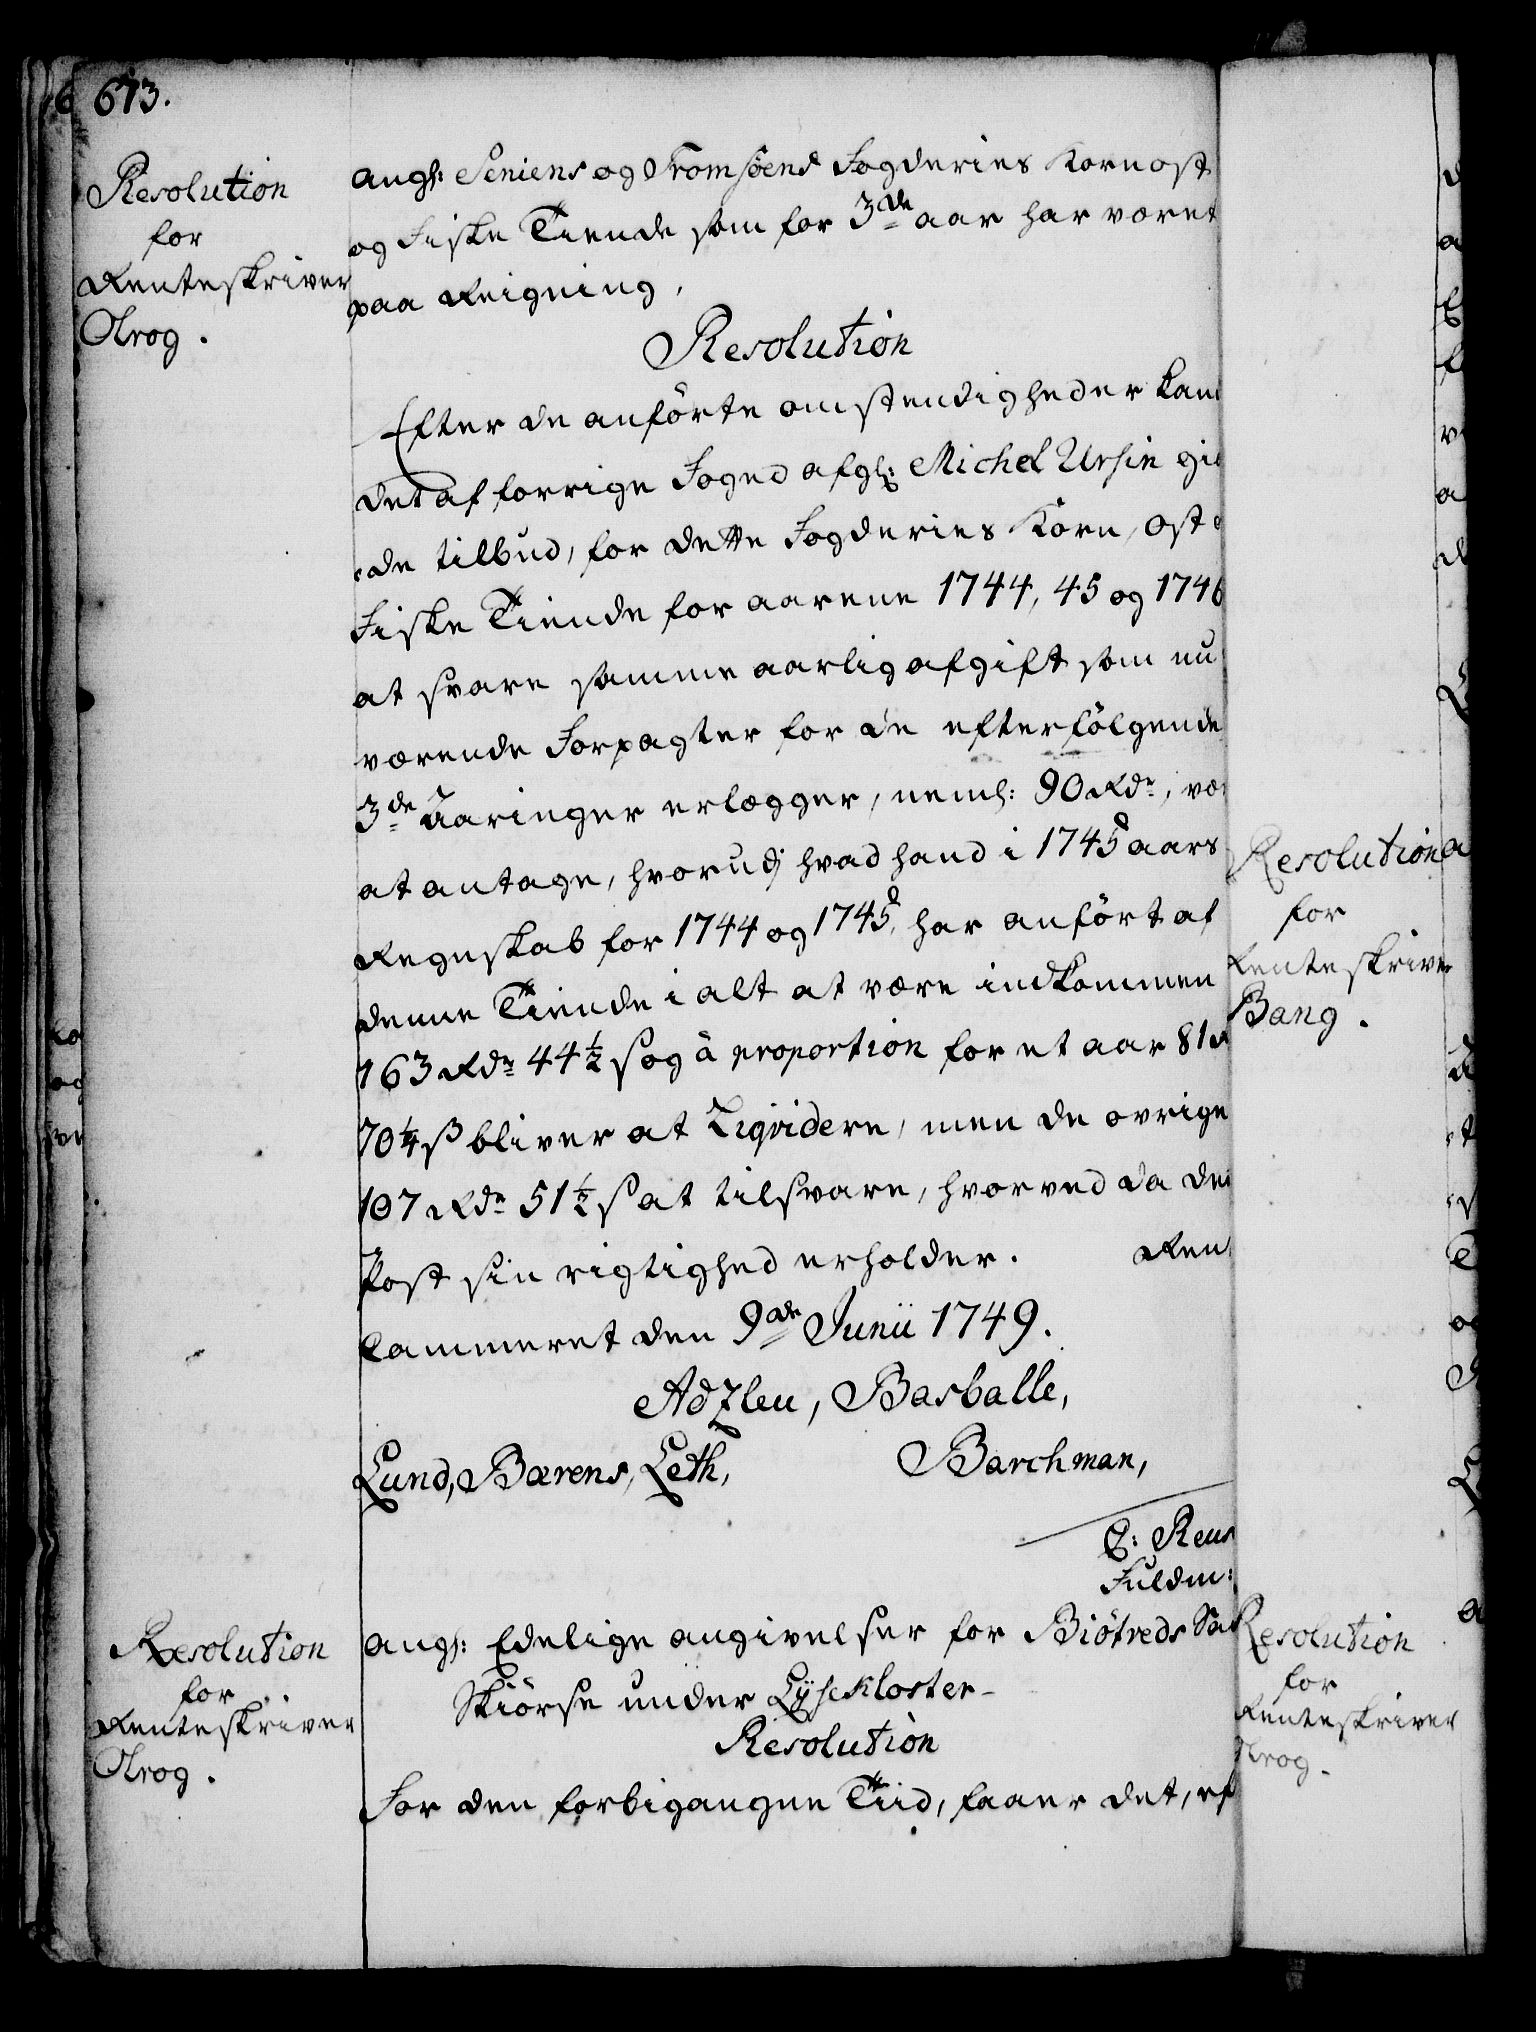 673.
Resolution
for
Renteskriver
Krog.
angl: Seniens og Tromsöens Fogderies Korn ost
og Fiske Tiende som for 3de aar har været
paa Reigning,
Resolution
Efter de anförte omstendigheder kand
det af forrige Foged afgl: Michel Ursin gi
de tilbud, for dette Fogderies Korn, Ost
Fiske Tiende for aarene 1744, 45 og 1746
at svare samme aarlig afgift som nu
værende Forpagter for de efterfölgende
3de Aaringer erlægger, neml: 90 Rdr, vær
at antage, hvorudj hvad hand i 1745 aars
Regnskab for 1744 og 1745, har anfört af
denne Tiende i alt at være indkommen
163 Rdr 44½ s og à proportion for et aar 81 R
70¼ s bliver at Liqvidere, men de ovrige
107 Rdr 51½ s at tilsvare, hvorved da den
Post sin rigtighed erholder. Ren
Cammeret den 9de Junii 1749.
Adzleu, Basballe,
Lund, Bærens, Leth, Barchman,
C: Reus
Fuldm:
Resolution
for
Renteskriver
Krog.
angl: Edelige angivelser for Biötveds
Skiörse under Lyse Kloster
Resolution
For den forbigangne Tiid, faaer det, ef
Resolution
for
Renteskriver
Bang.
Resolution
for
Renteskriver
Krog.